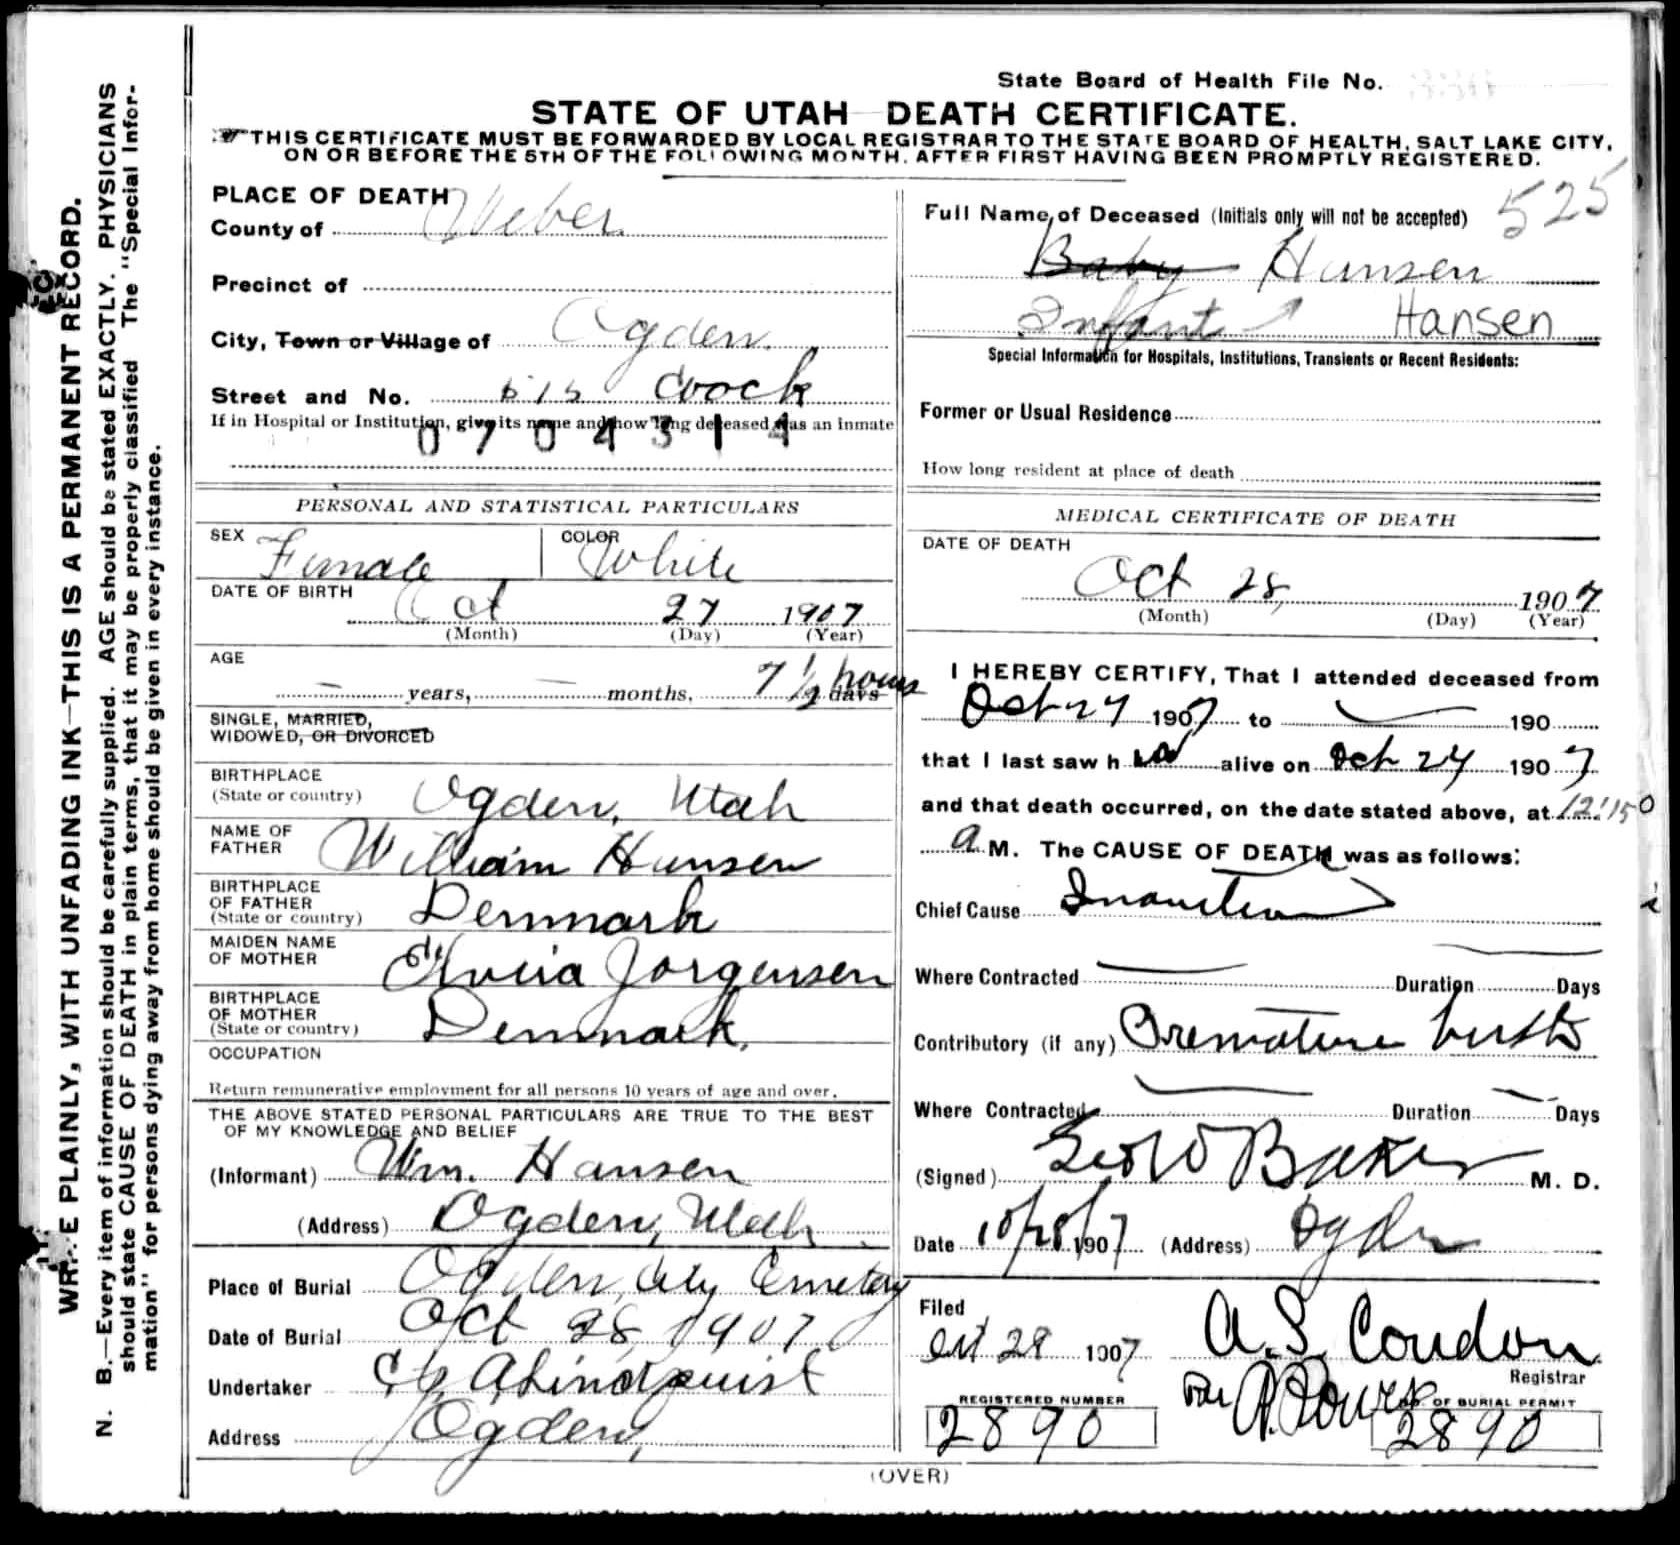 State Board of Health File No.
STATE OF UTAH DEATH CERTIFICATE.
THIS CERTIFICATE MUST BE FORWARDED BY LOCAL REGISTRAR TO THE STATE BOARD OF HEALTH, SALT LAKE CITY,
ON OR BEFORE THE 5TH OF THE FOLLOWING MONTH, AFTER FIRST HAVING BEEN PROMPTLY REGISTERED.
WRITE PLAINLY, WITH UNFADING INK—THIS IS A PERMANENT RECORD.
N. B.—Every item of information should be carefully supplied. AGE should be stated EXACTLY. PHYSICIANS
should state CAUSE OF DEATH in plain terms, that it may be properly classified The "Special Infor-
mation" for persons dying away from home should be given in every instance.
PLACE OF DEATH
County of Weber
Precinct of
City, Town or Village of Ogden.
Street and No. Crock
If in Hospital or Institution, give its name and how long deceased was an inmate
0704314
PERSONAL AND STATISTICAL PARTICULARS
SEX Female COLOR White
DATE OF BIRTH Oct 27 1907
(Month) (Day) (Year)
AGE
— years, — months, 7 1/2 hours days
SINGLE, MARRIED,
WIDOWED, OR DIVORCED
BIRTHPLACE
(State or country) Ogden, Utah
NAME OF
FATHER William Hansen
BIRTHPLACE
OF FATHER
(State or country) Denmark
MAIDEN NAME
OF MOTHER Jorgensen
BIRTHPLACE
OF MOTHER
(State or country) Denmark.
OCCUPATION
Return remunerative employment for all persons 10 years of age and over.
THE ABOVE STATED PERSONAL PARTICULARS ARE TRUE TO THE BEST
OF MY KNOWLEDGE AND BELIEF
(Informant) Wm. Hansen
(Address) Ogden, Utah.
Place of Burial Ogden City Cemetery
Date of Burial Oct 28, 1907
Undertaker A Lindquist
Address Ogden,
525
Full Name of Deceased (Initials only will not be accepted)
Baby Hansen
Infant Hansen
Special Information for Hospitals, Institutions, Transients or Recent Residents:
Former or Usual Residence
How long resident at place of death
MEDICAL CERTIFICATE OF DEATH
DATE OF DEATH
Oct 28, 1907
(Month) (Day) (Year)
I HEREBY CERTIFY, That I attended deceased from
Oct 27 1907 to — 190
that I last saw h er alive on Oct 27 1907
and that death occurred, on the date stated above, at 12:15
a M. The CAUSE OF DEATH was as follows:
Chief Cause Inanition
Where Contracted — Duration — Days
Contributory (if any) Premature birth
Where Contracted — Duration — Days
(Signed) Geo W Baker M. D.
Date 10/28/1907 (Address) Ogden
Filed
Oct 28 1907 A. S. Condon
Registrar
Per A. Powers
REGISTERED NUMBER NO. OF BURIAL PERMIT
2890 2890
(OVER)